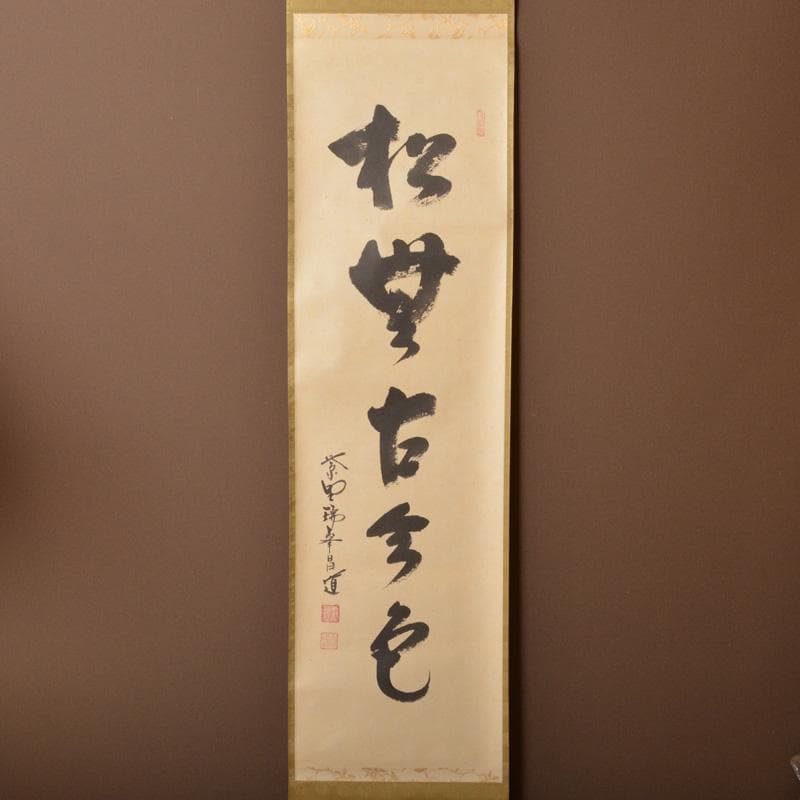 松無古今色
紫野瑞峯昌道